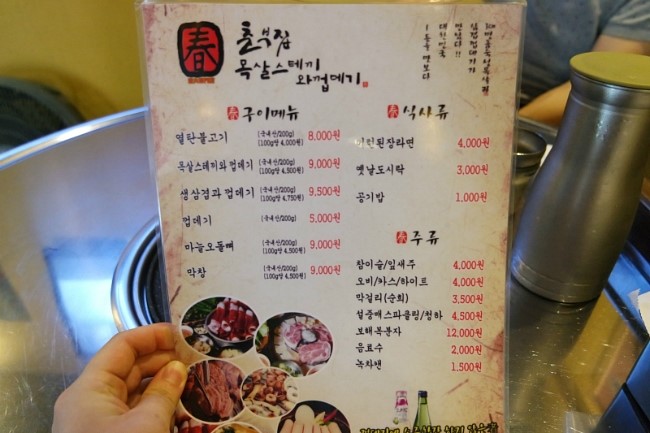 春
춘부집
목살스테끼
와껍데기
春 구이메뉴
열탄불고기 (국내산/200g) (100g당 4,000원) 8,000원
목살스테끼와 껍데기 (국내산/200g) (100g당 4,500원) 9,000원
생삼겹과 껍데기 (국내산/200g) (100g당 4,750원) 9,500원
껍데기 (국내산/200g) 5,000원
마늘오돌뼈 (국내산/200g) (100g당 4,500원) 9,000원
막창 (국내산/200g) (100g당 4,500원) 9,000원
春 식사류
된장라면 4,000원
옛날도시락 3,000원
공기밥 1,000원
春 주류
참이슬/잎새주 4,000원
오비/카스/하이트 4,000원
막걸리(순희) 3,500원
설중매스파클링/청하 4,500원
보해복분자 12,000원
음료수 2,000원
녹차앤 1,500원